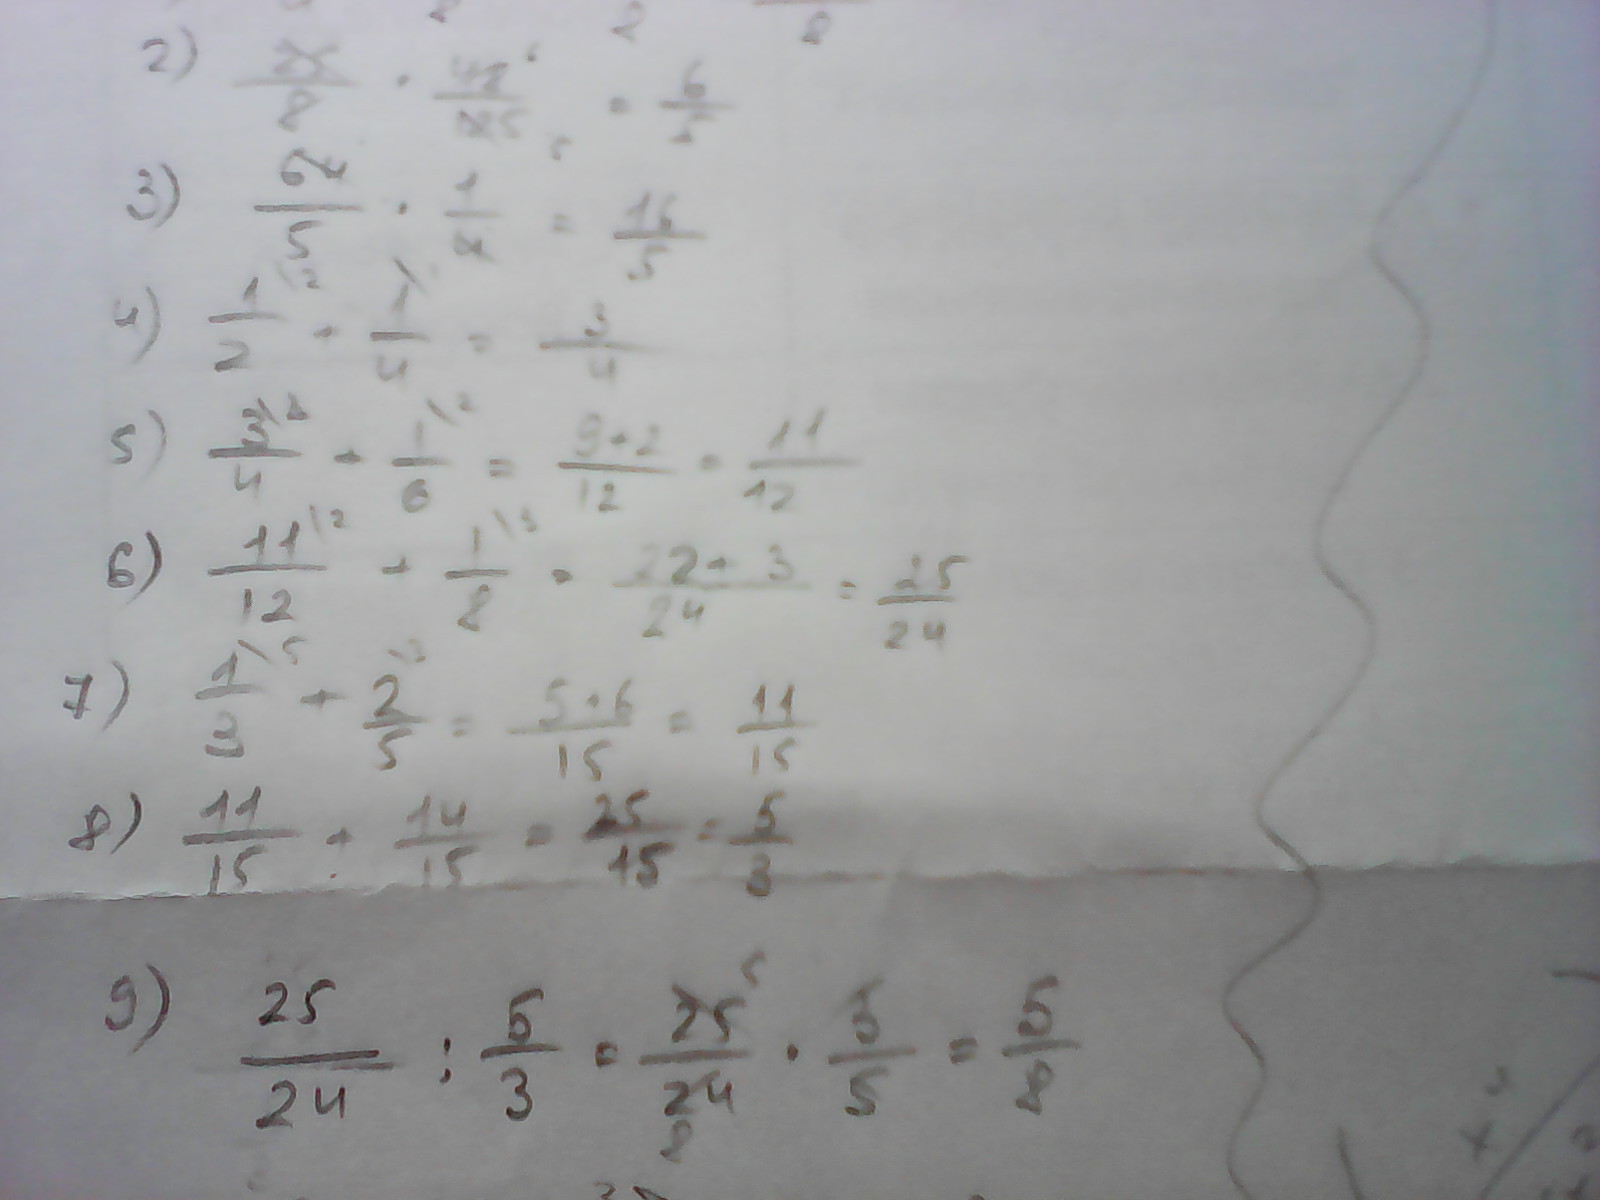 3) 64/5 · 1/4 = 16/5
4) 1\2/2 + 1\/4 = 3/4
5) 3\3/4 + 1\2/6 = 9+2/12 = 11/12
6) 11\2/12 + 1\3/8 = 22+3/24 = 25/24
7) 1\5/3 + 2\3/5 = 5+6/15 = 11/15
8) 11/15 + 14/15 = 25/15 = 5/3
9) 25/24 : 5/3 = 25/24 · 3/5 = 5/8